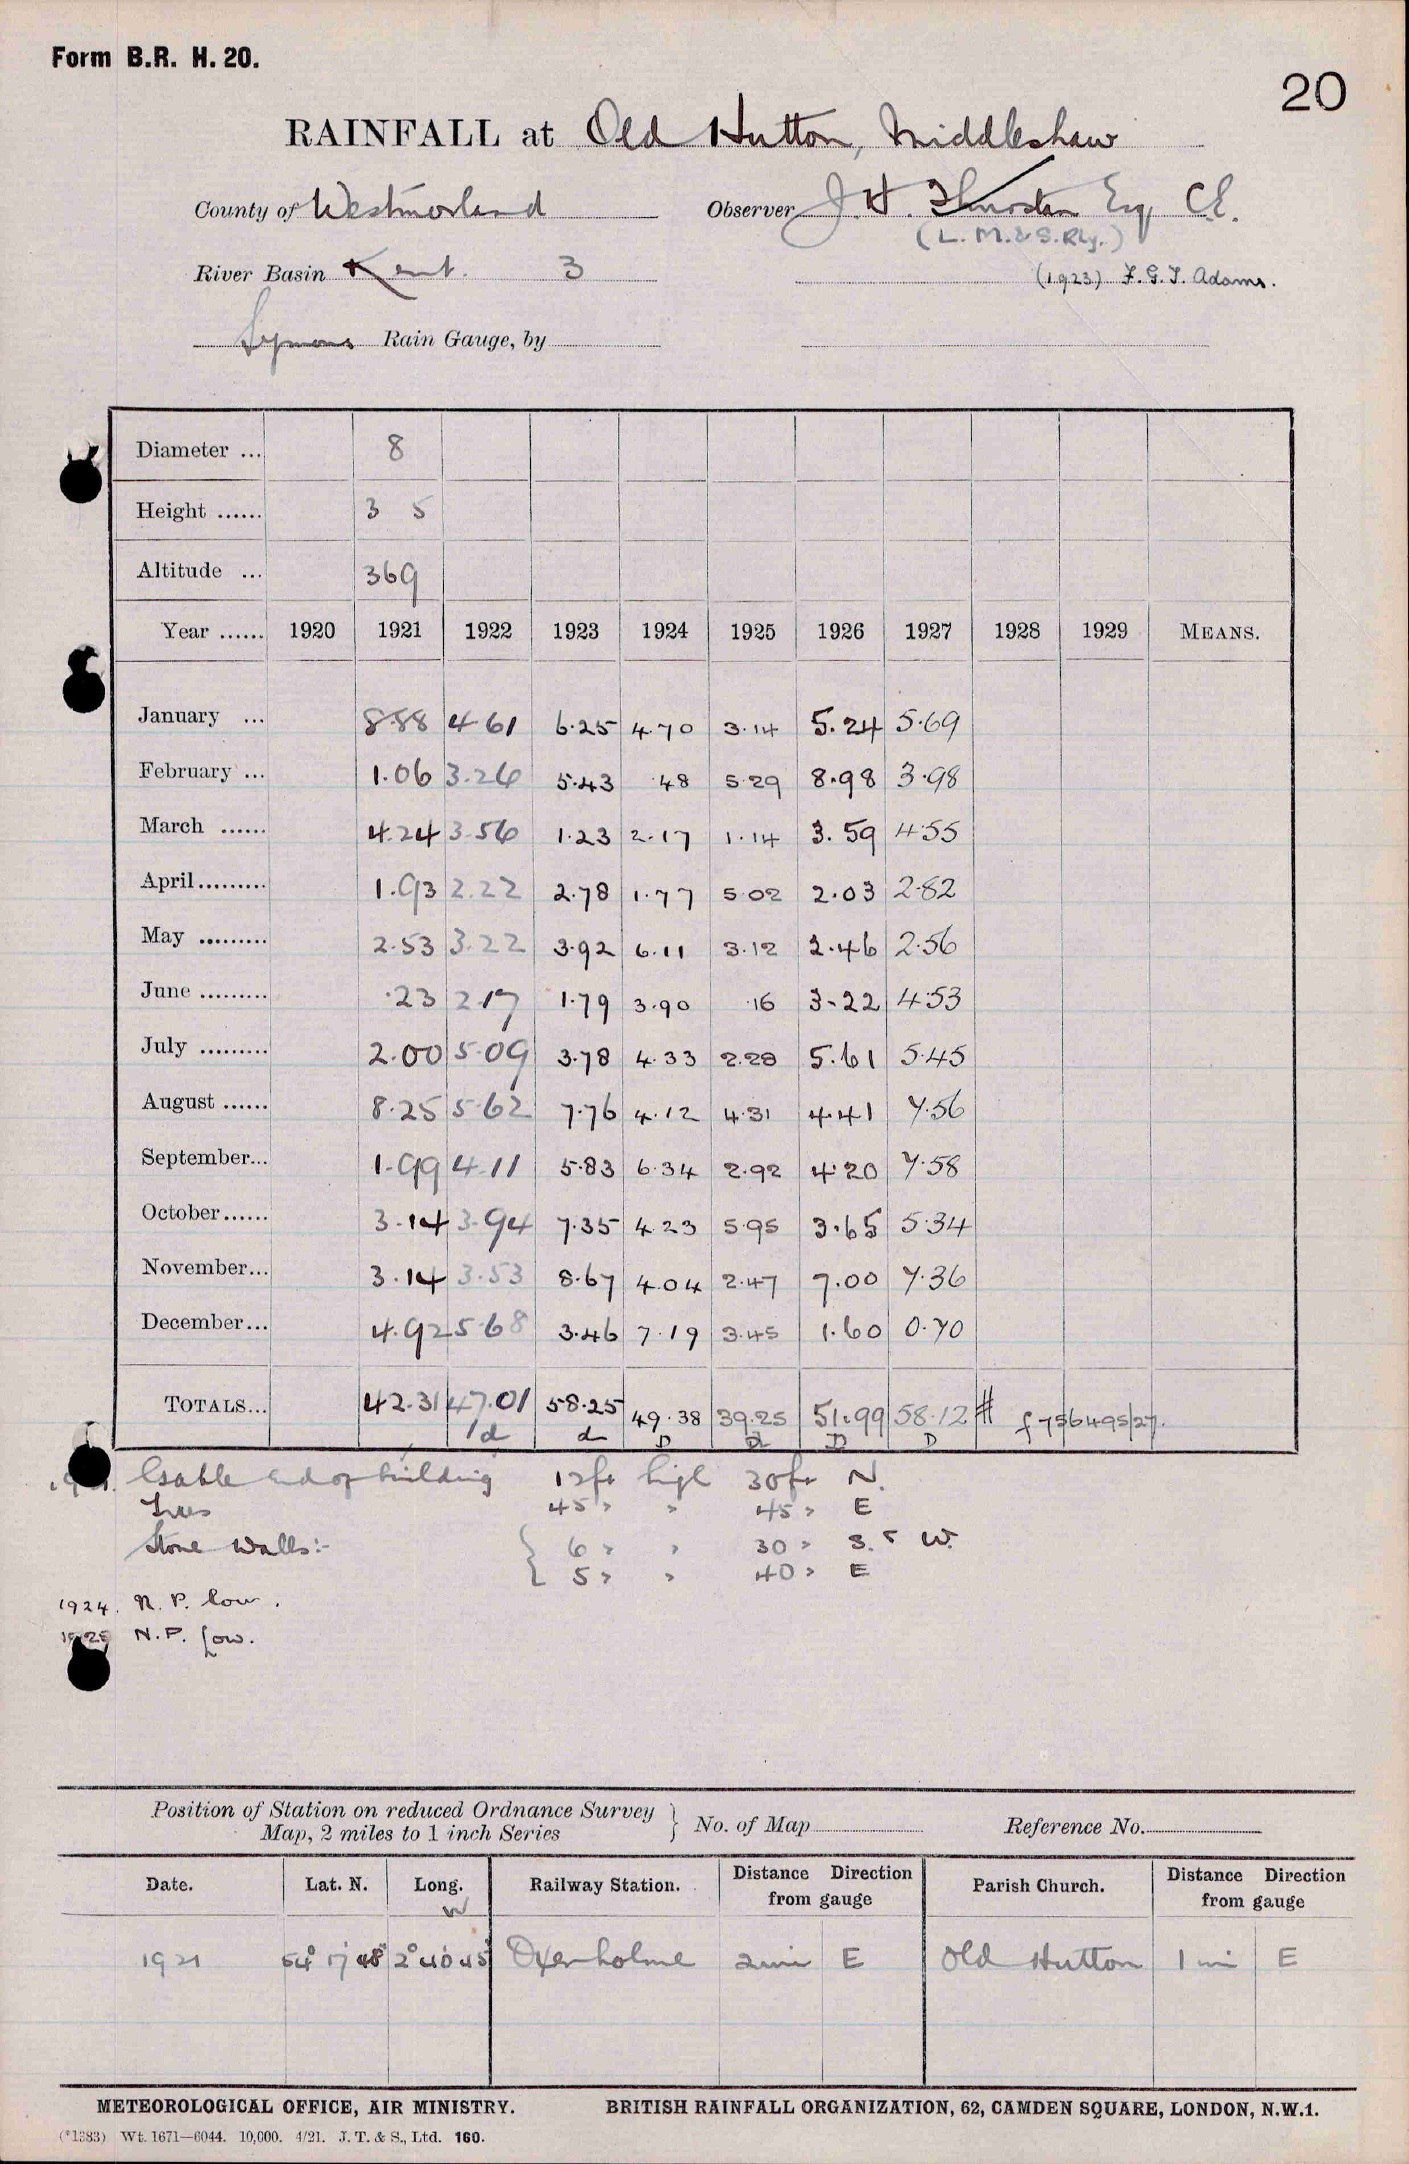 Form B.R. H. 20.
20
RAINFALL at Old Hutton, Middleshaw
County of Westmorland Observer J. H. Thurston Esq C.E.
(L. M. & S. Rly.)
River Basin Kent. 3 (1923) F. G. T. Adams.
Symons Rain Gauge, by
Diameter ... 8
Height ...... 3 5
Altitude ... 369
Year ...... 1920 1921 1922 1923 1924 1925 1926 1927 1928 1929 MEANS.
January ... 8.88 4.61 6.25 4.70 3.14 5.24 5.69
February ... 1.06 3.26 5.43 .48 5.29 8.98 3.98
March ...... 4.24 3.56 1.23 2.17 1.14 3.59 4.55
April......... 1.93 2.22 2.78 1.77 5.02 2.03 2.82
May ......... 2.53 3.22 3.92 6.11 3.12 2.46 2.56
June ......... .23 2.17 1.79 3.90 .16 3.22 4.53
July ......... 2.00 5.09 3.78 4.33 2.28 5.61 5.45
August ...... 8.25 5.62 7.76 4.12 4.31 4.41 7.56
September... 1.99 4.11 5.83 6.34 2.92 4.20 7.58
October...... 3.14 3.94 7.35 4.23 5.95 3.65 5.34
November... 3.14 3.53 8.67 4.04 2.47 7.00 7.36
December... 4.92 5.68 3.46 7.19 3.45 1.60 0.70
TOTALS... 42.31 47.01 58.25 49.38 39.25 51.99 58.12 # f 756495/27.
/d d D d D D
Gable end of building 12ft high 30ft N.
Trees 45 " " 45 " E
Stone Walls:- { 6 " " 30 " S. & W.
5 " " 40 " E
1924. N. P. low.
1925 N.P. low.
Position of Station on reduced Ordnance Survey
Map, 2 miles to 1 inch Series } No. of Map Reference No.
Date. Lat. N. Long. W Railway Station. Distance Direction from gauge Parish Church. Distance Direction from gauge
1921 54° 17' 48" 2° 40' 45" Oxenholme 2 mi E Old Hutton 1 mi E
METEOROLOGICAL OFFICE, AIR MINISTRY. BRITISH RAINFALL ORGANIZATION, 62, CAMDEN SQUARE, LONDON, N.W.1.
(*1383) Wt. 1671—6044. 10,000. 4/21. J. T. & S., Ltd. 160.